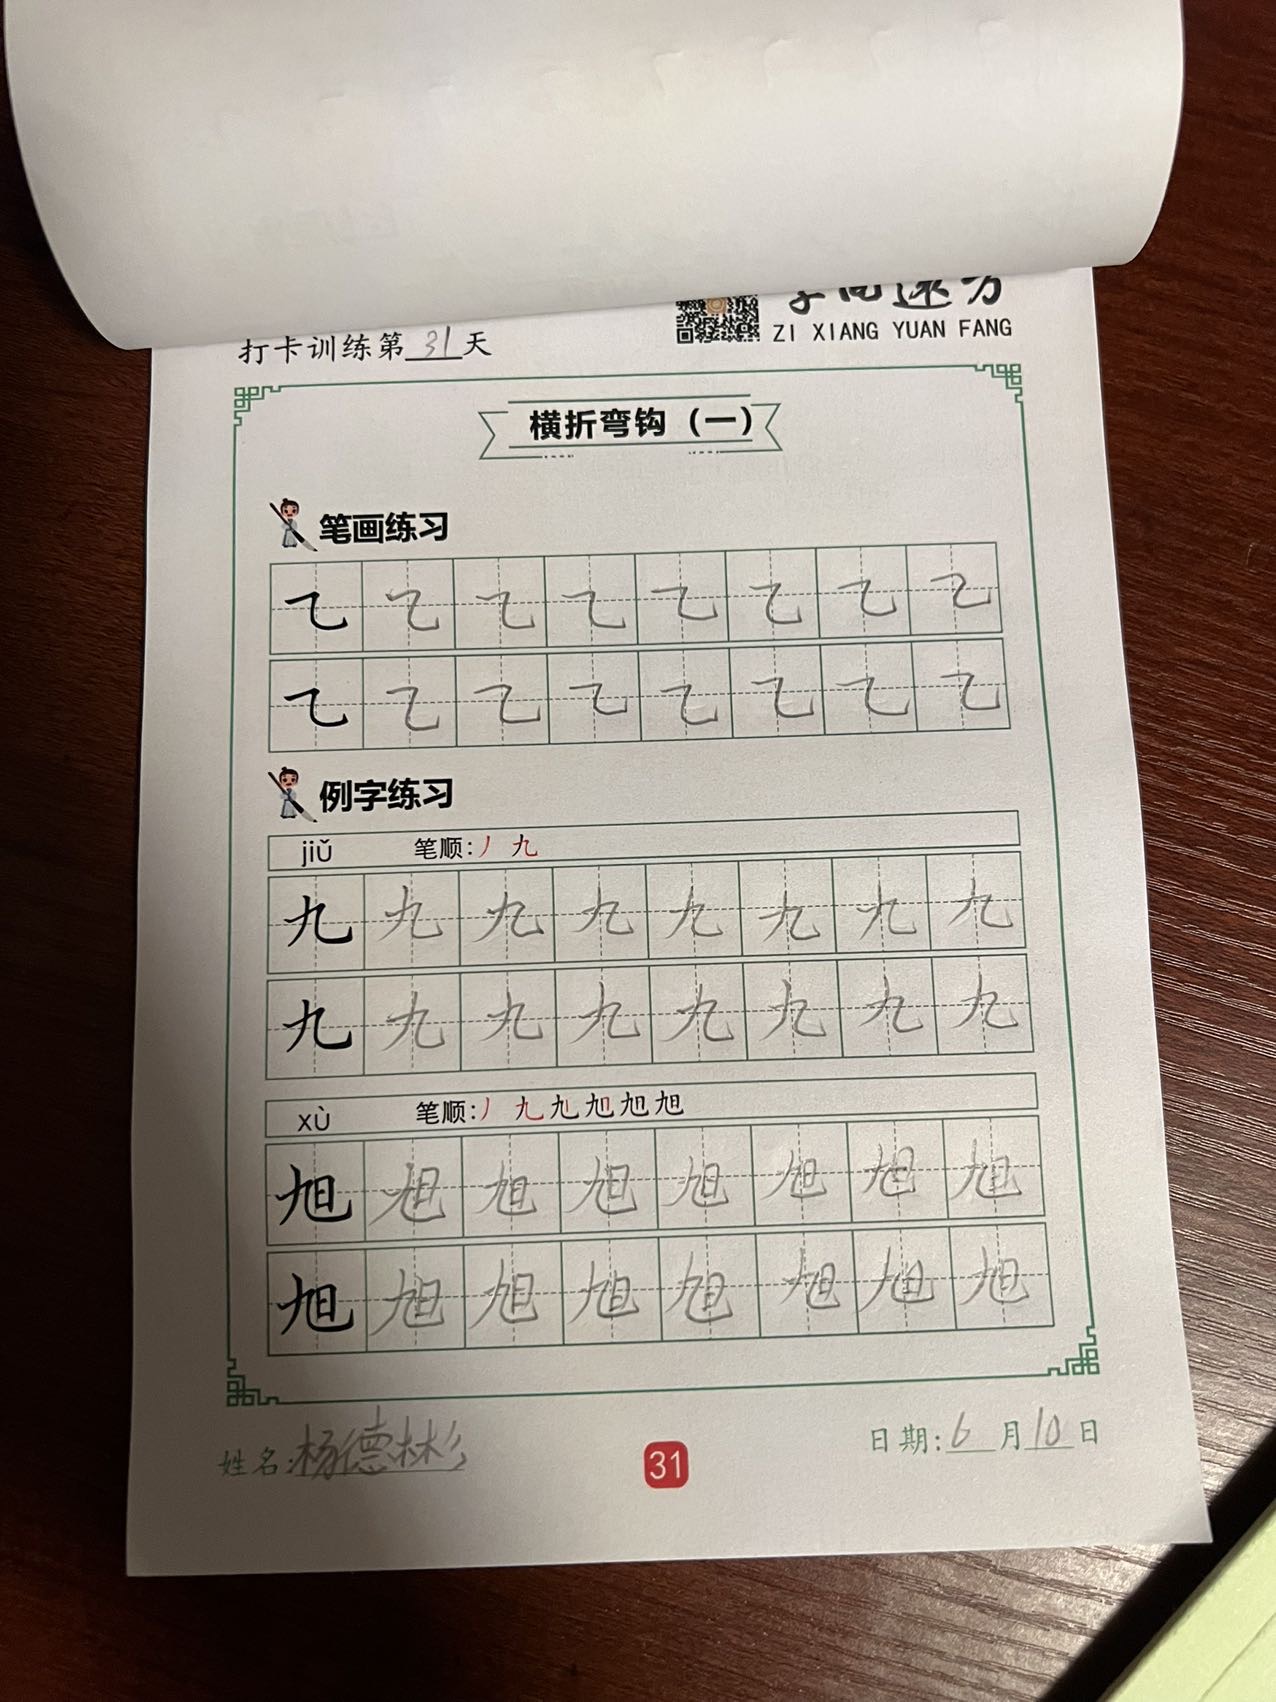 ZI XIANG YUAN FANG
打卡训练第31天
横折弯钩（一）
笔画练习
㇈ ㇈ ㇈ ㇈ ㇈ ㇈ ㇈ ㇈
㇈ ㇈ ㇈ ㇈ ㇈ ㇈ ㇈ ㇈
例字练习
jiǔ 笔顺:丿 九
九 九 九 九 九 九 九 九
九 九 九 九 九 九 九 九
xù 笔顺:丿 九 旭 旭 旭 旭
旭 旭 旭 旭 旭 旭 旭 旭
旭 旭 旭 旭 旭 旭 旭 旭
姓名:杨德彬 31 日期:6月10日